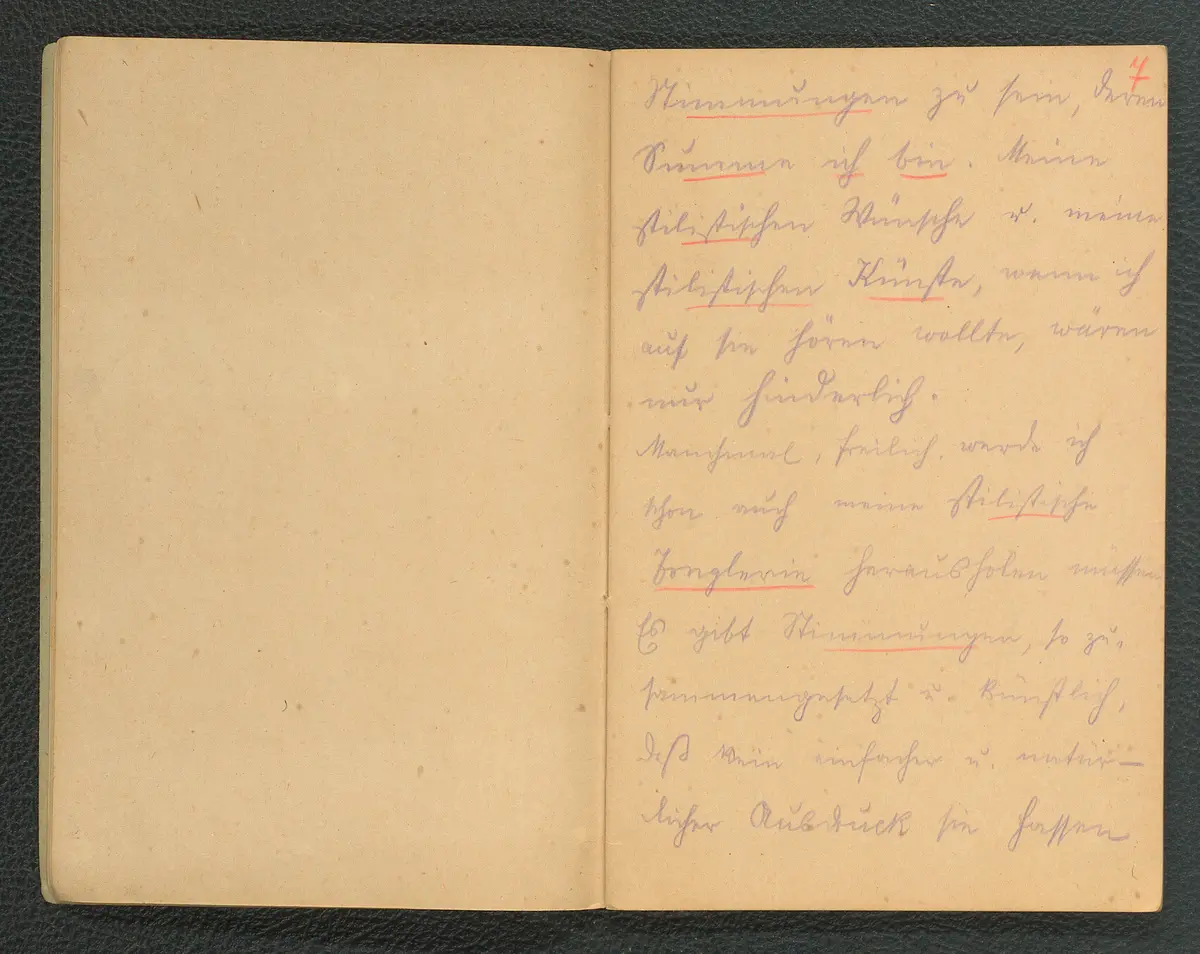 7
Stimmungen zu sein, deren
Summe ich bin. Meine
stilistischen Wünsche u. meine
stilistischen Künste, wenn ich
auf sie hören wollte, wären
nur hinderlich.
Manchmal, freilich, werde ich
schon auch meine stilistische
Jonglerie herausholen müssen
Es gibt Stimmungen, so zu-
sammengesetzt u. künstlich,
daß kein einfacher u. natür-
licher Ausdruck sie fassen